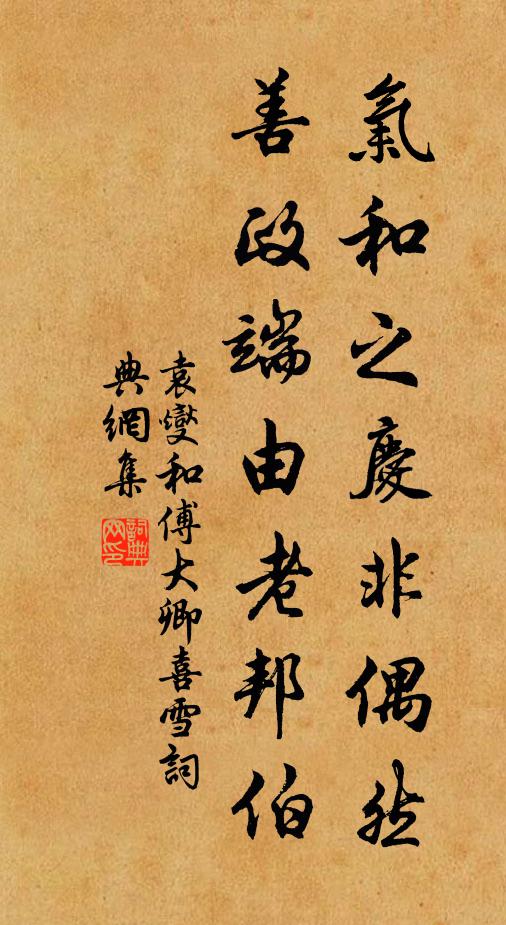 氣和之慶非偶然
善政端由老邦伯
袁燮和傅大卿喜雪詞
典網集
詞典網印